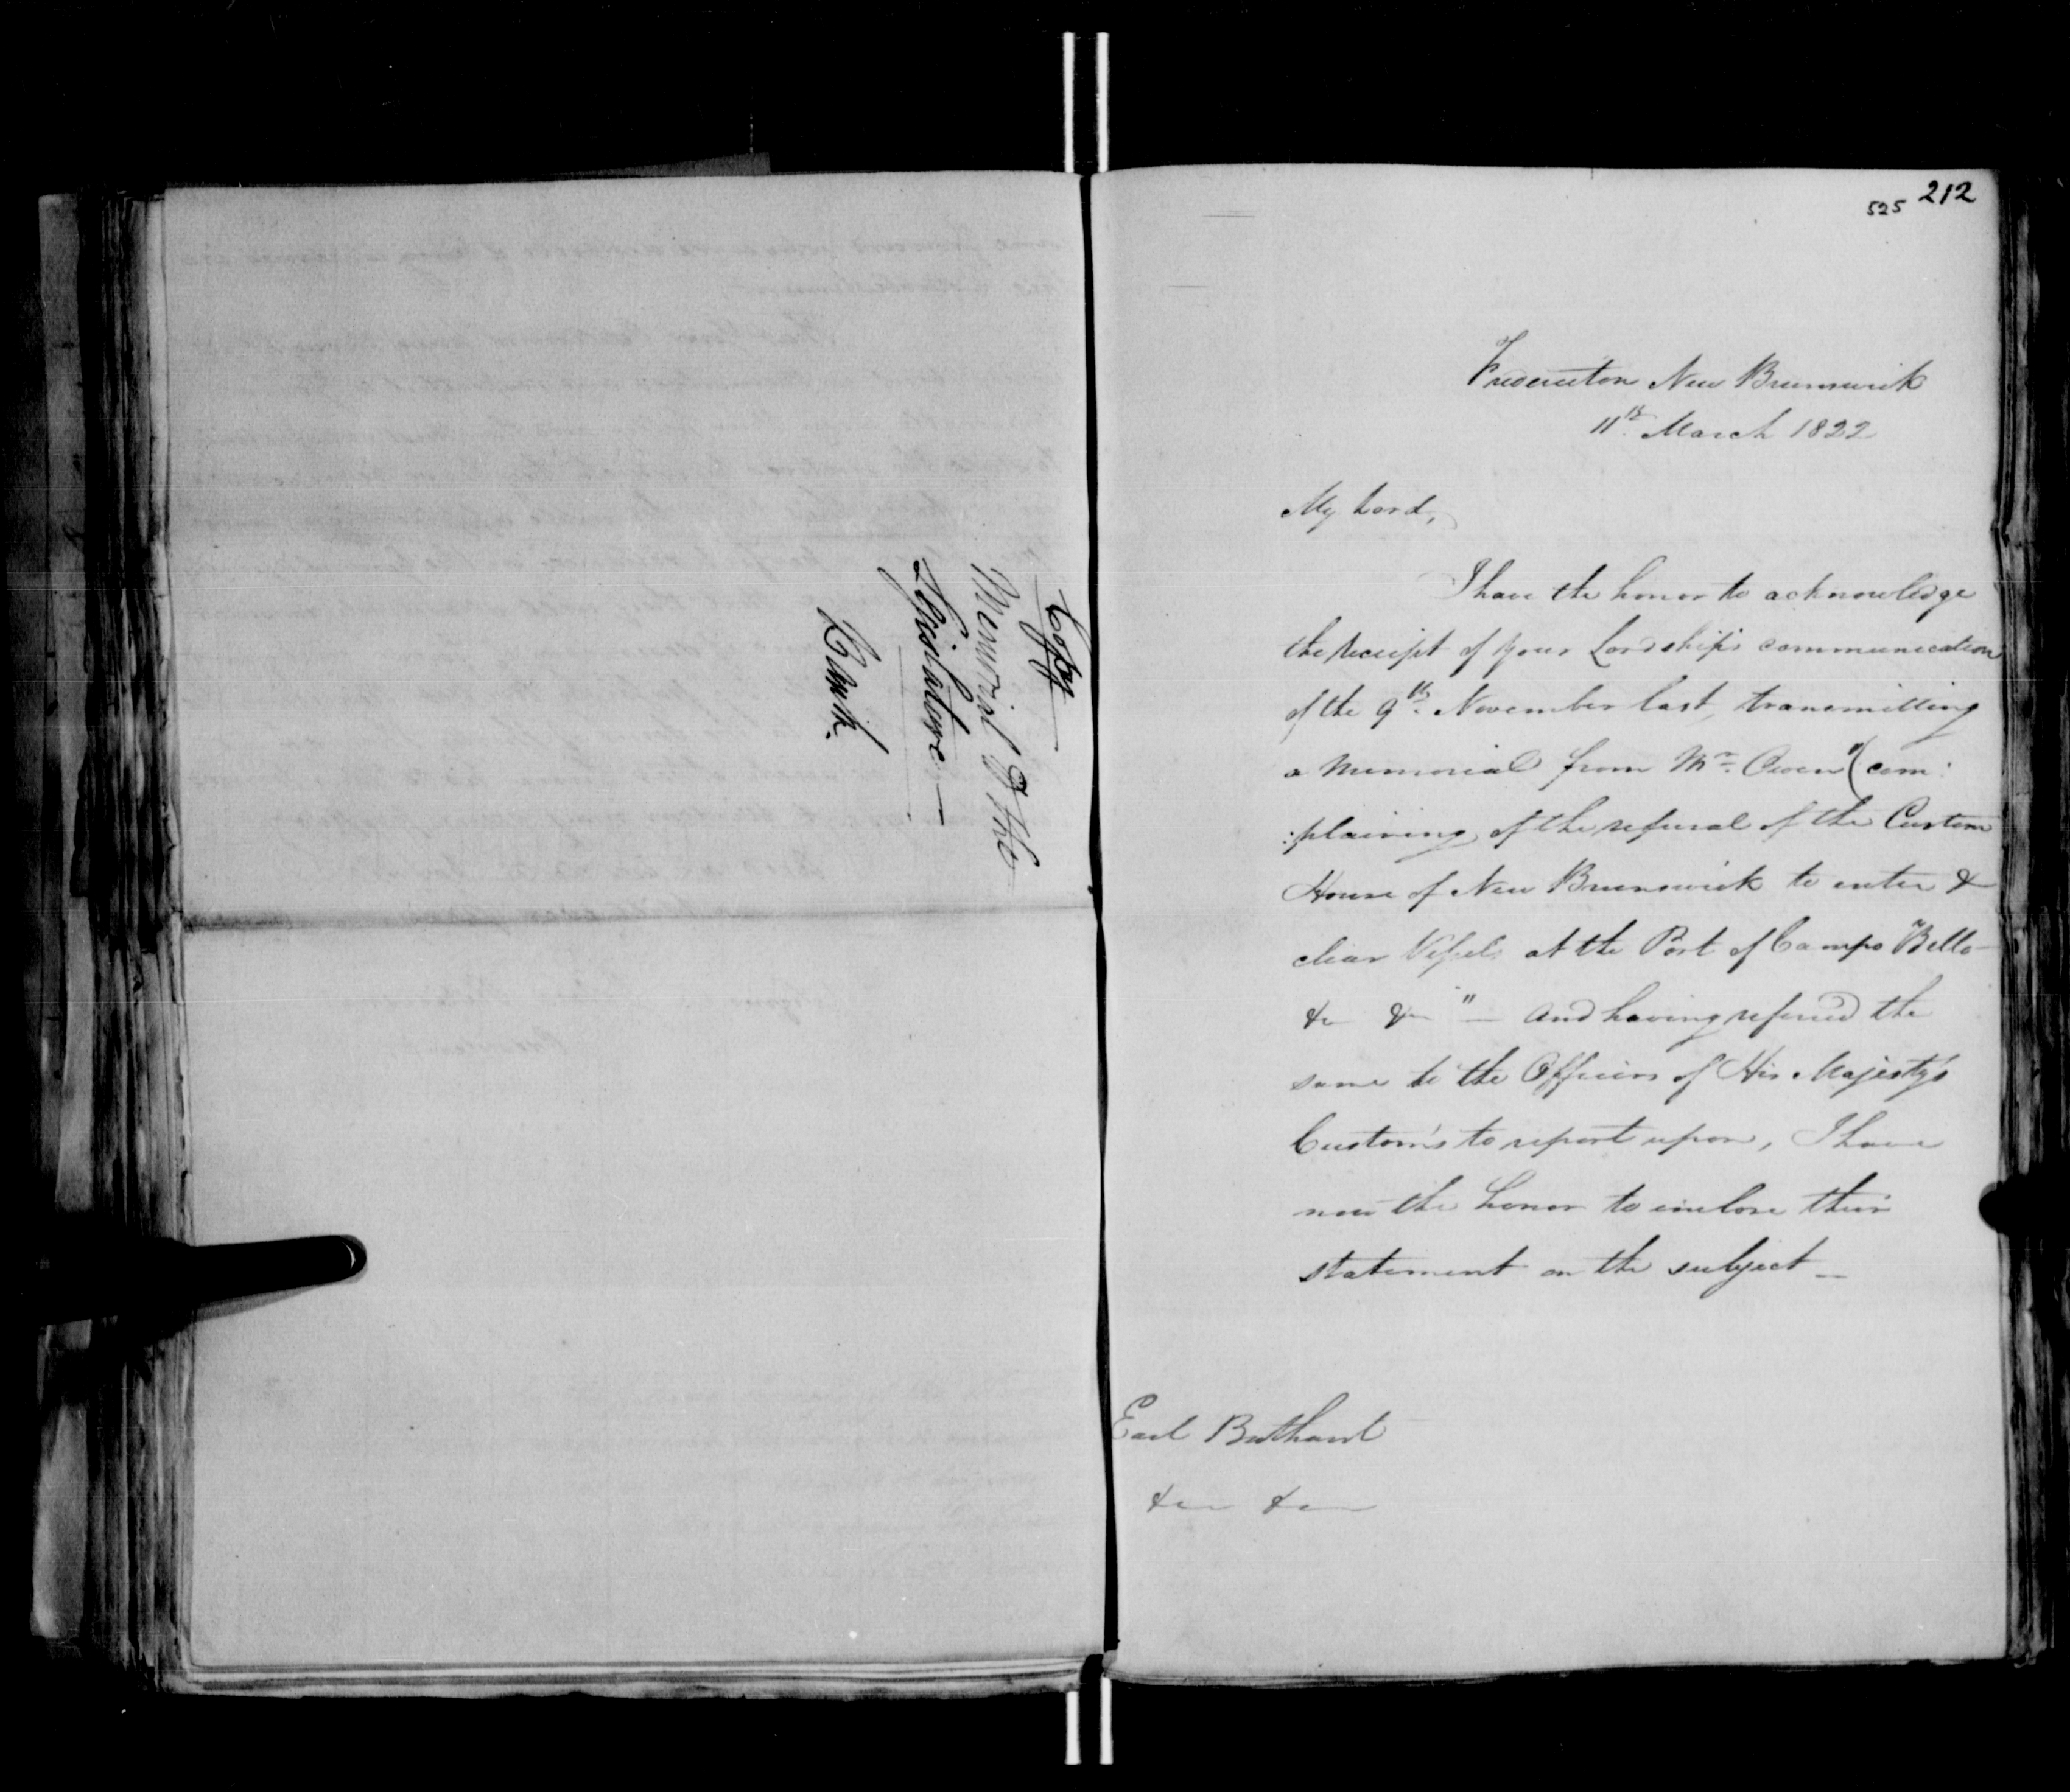 Copy
Memorial of the
Legislature —
Bank.
525 212
Fredericton New Brunswick
11th March 1822
My Lord,
I have the honor to acknowledge
the receipt of your Lordship's communication
of the 9th November last, transmitting
a Memorial from Mr. Owen "(com:
:plaining of the refusal of the Custom
House of New Brunswick to enter &
clear Vessels at the Port of Campo Bello
&c &c " — and having referred the
same to the Officers of His Majesty's
Custom's to report upon, I have
now the honor to inclose their
statement on the subject —
Earl Bathurst
&c &c